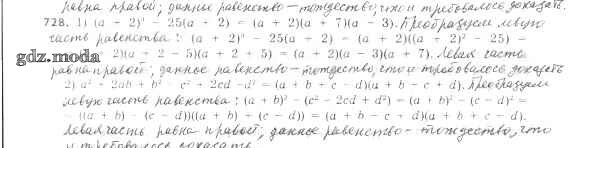 равна правой; данные равенство – тождество, что и требовалось доказать.
728. 1) (a + 2)³ − 25(a + 2) = (a + 2)(a + 7)(a − 3). Преобразуем левую
часть равенства: (a + 2)³ − 25(a + 2) = (a + 2)((a + 2)² − 25) =
2)(a + 2 − 5)(a + 2 + 5) = (a + 2)(a − 3)(a + 7). Левая часть
gdz.moda
равна правой; данное равенство – тождество, что и требовалось доказать
2) a² + 2ab + b² − c² + 2cd − d² = (a + b + c − d)(a + b − c + d). Преобразуем
левую часть равенства: (a + b)² − (c² − 2cd + d²) = (a + b)² − (c − d)² =
((a + b) − (c − d))((a + b) + (c − d)) = (a + b − c + d)(a + b + c − d).
Левая часть равна правой; данное равенство – тождество, что
и требовалось доказать.